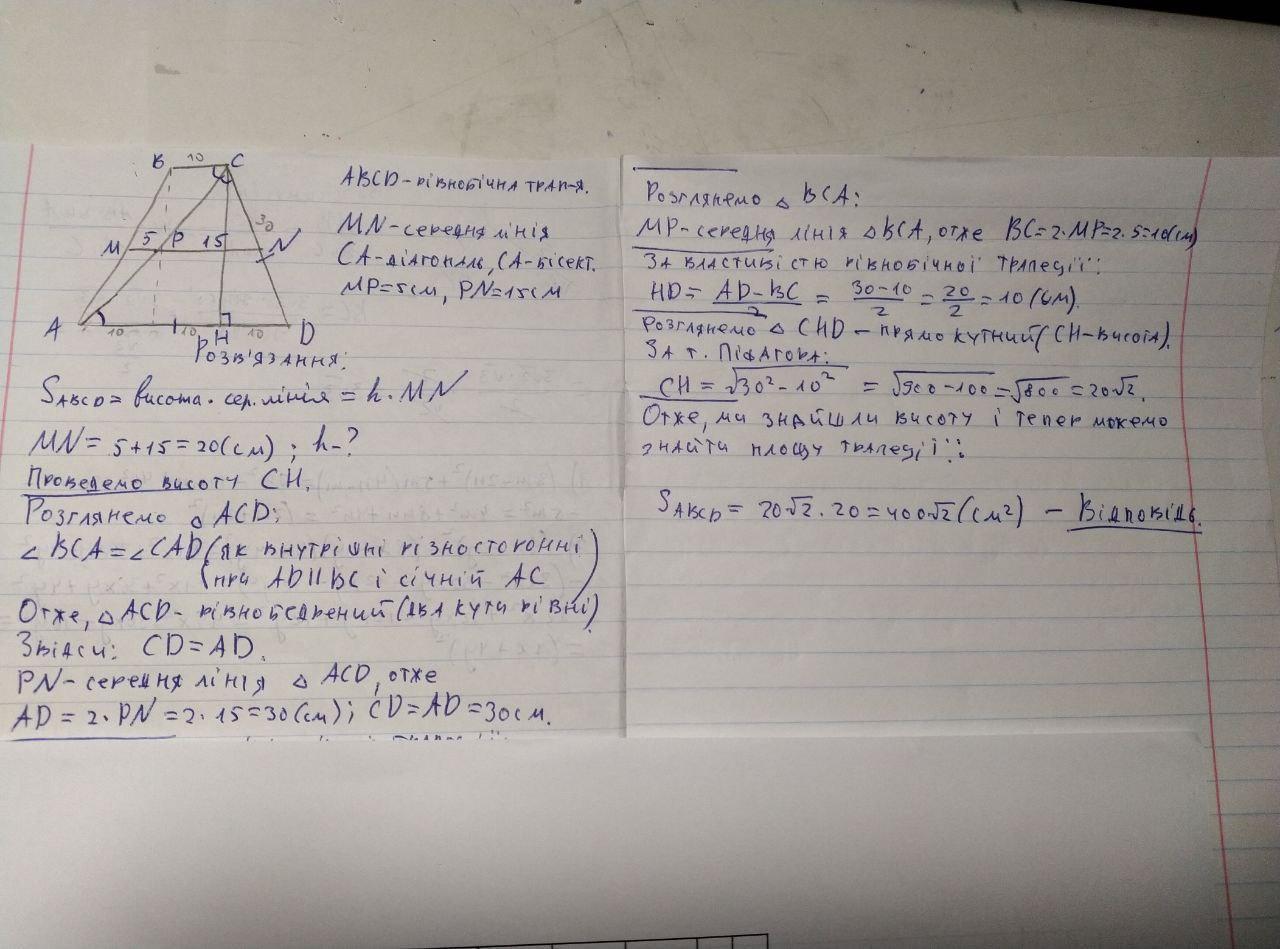 B 10 C
30
M 5 P 15 N
A 10 10 10 D
P H
ABCD - рівнобічна трап-я.
MN - середня лінія
CA - діагональ, CA - бісект.
MP = 5см, PN = 15см
Розв'язання:
S_ABCD = висота · сер. лінія = h · MN
MN = 5 + 15 = 20 (см) ; h - ?
Проведемо висоту CH.
Розглянемо △ ACD:
∠ BCA = ∠ CAD (як внутрішні різносторонні
при AD || BC і січній AC)
Отже, △ ACD - рівнобедрений (два кути рівні)
Звідси: CD = AD.
PN - середня лінія △ ACD, отже
AD = 2 · PN = 2 · 15 = 30 (см) ; CD = AD = 30 см.
Розглянемо △ BCA:
MP - середня лінія △ BCA, отже BC = 2 · MP = 2 · 5 = 10 (см)
За властивістю рівнобічної трапеції:
HD = AD - BC / 2 = 30 - 10 / 2 = 20 / 2 = 10 (см).
Розглянемо △ CHD - прямокутний (CH - висота).
За т. Піфагора:
CH = √30² - 10² = √900 - 100 = √800 = 20√2.
Отже, ми знайшли висоту і тепер можемо
знайти площу трапеції:
S_ABCD = 20√2 · 20 = 400√2 (см²) - Відповідь.